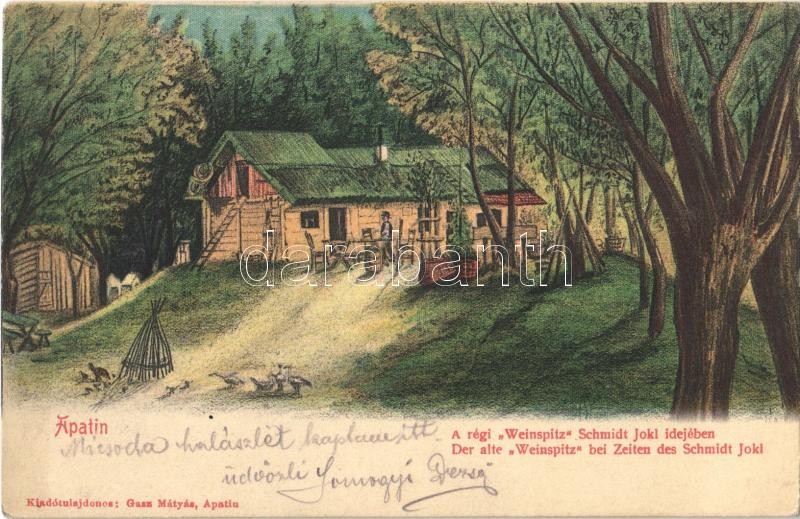 darabanth
Apatin
A régi „Weinspitz" Schmidt Jokl idejében
Der alte „Weinspitz" bei Zeiten des Schmidt Jokl
Micsoda halászlét kaptam itt.
üdvözli Somogyi Dezső
Kiadótulajdonos: Gasz Mátyás, Apatin